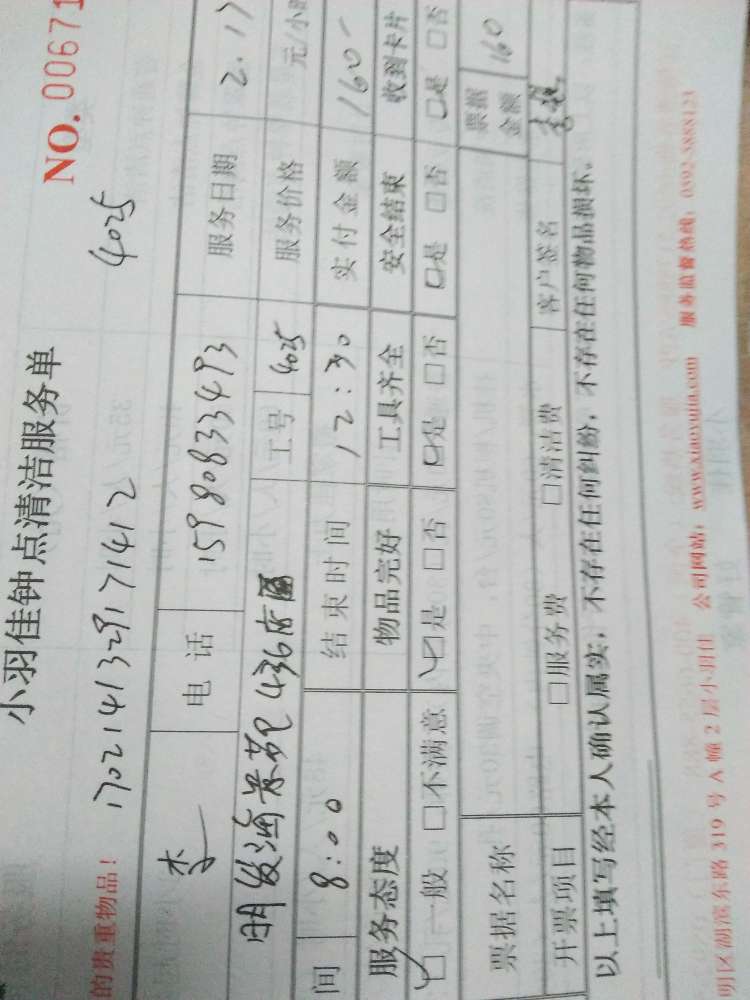 小羽佳钟点清洁服务单
NO. 00671
的贵重物品！ 1702141329171412 4025
李 电话 15980833493 服务日期 2.17
明发海景苑436店面 工号 4025 服务价格 元/小时
间 8:00 结束时间 12:30 实付金额 160-
服务态度 物品完好 工具齐全 安全结束 收到卡片
□一般 □不满意 □是 □否 □是 □否 □是 □否 □是 □否
票据名称 票据金额 160
开票项目 □服务费 □清洁费 客户签名
以上填写经本人确认属实，不存在任何纠纷，不存在任何物品损坏。
明区湖滨东路 319 号 A 幢 2 层小羽佳 公司网站：www.xiaoyujia.com 服务监督热线：0592-5888123